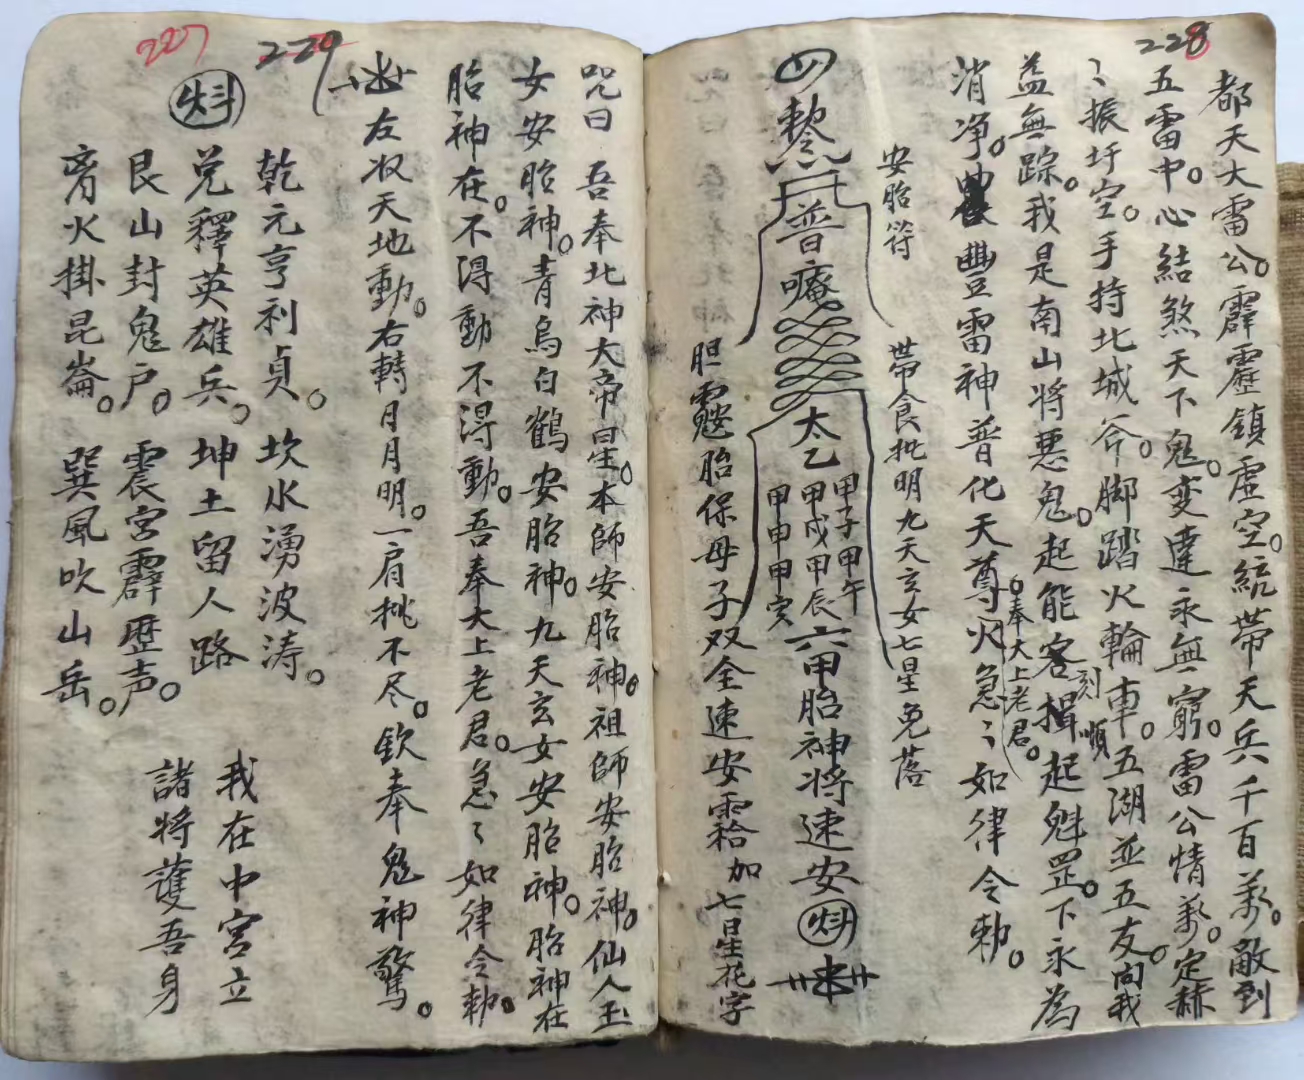 228
都天大雷公。霹靂鎮虛空。統帶天兵千百萬。敵到
五雷中。心結煞天下鬼。变達永無窮。雷公情萬。定赫
〻振圩空。手持北城斧。脚踏火輪車。五湖並五友。向我
刻順
益無踪。我是南山将惡鬼。起能客揖起魁罡。下永為
消净。豐雷神普化天尊火急〻如律令勅。
奉大上老君。
安胎符
带食批明九天玄女七星免落
普唵
太乙
甲子甲午
甲戍甲辰
甲申甲寅
六甲胎神将速安
胆 胎保母子双全速安 加七星花字
227
229
咒曰 吾奉北神大帝星。本師安胎神。祖師安胎神。仙人玉
女安胎神。青烏白鶴安胎神。九天玄女安胎神。胎神在
胎神在。不淂動不淂動。吾奉大上老君。急〻如律令勅。
左収天地動。右轉月月明。一肩挑不尽。欽奉鬼神驚。
乾元亨利貞。坎水湧波涛。
兌釋英雄兵。坤土留人路
艮山封鬼户。震宮霹歷声。
离火掛昆崙。巽風吹山岳。
我在中宮立
諸将護吾身